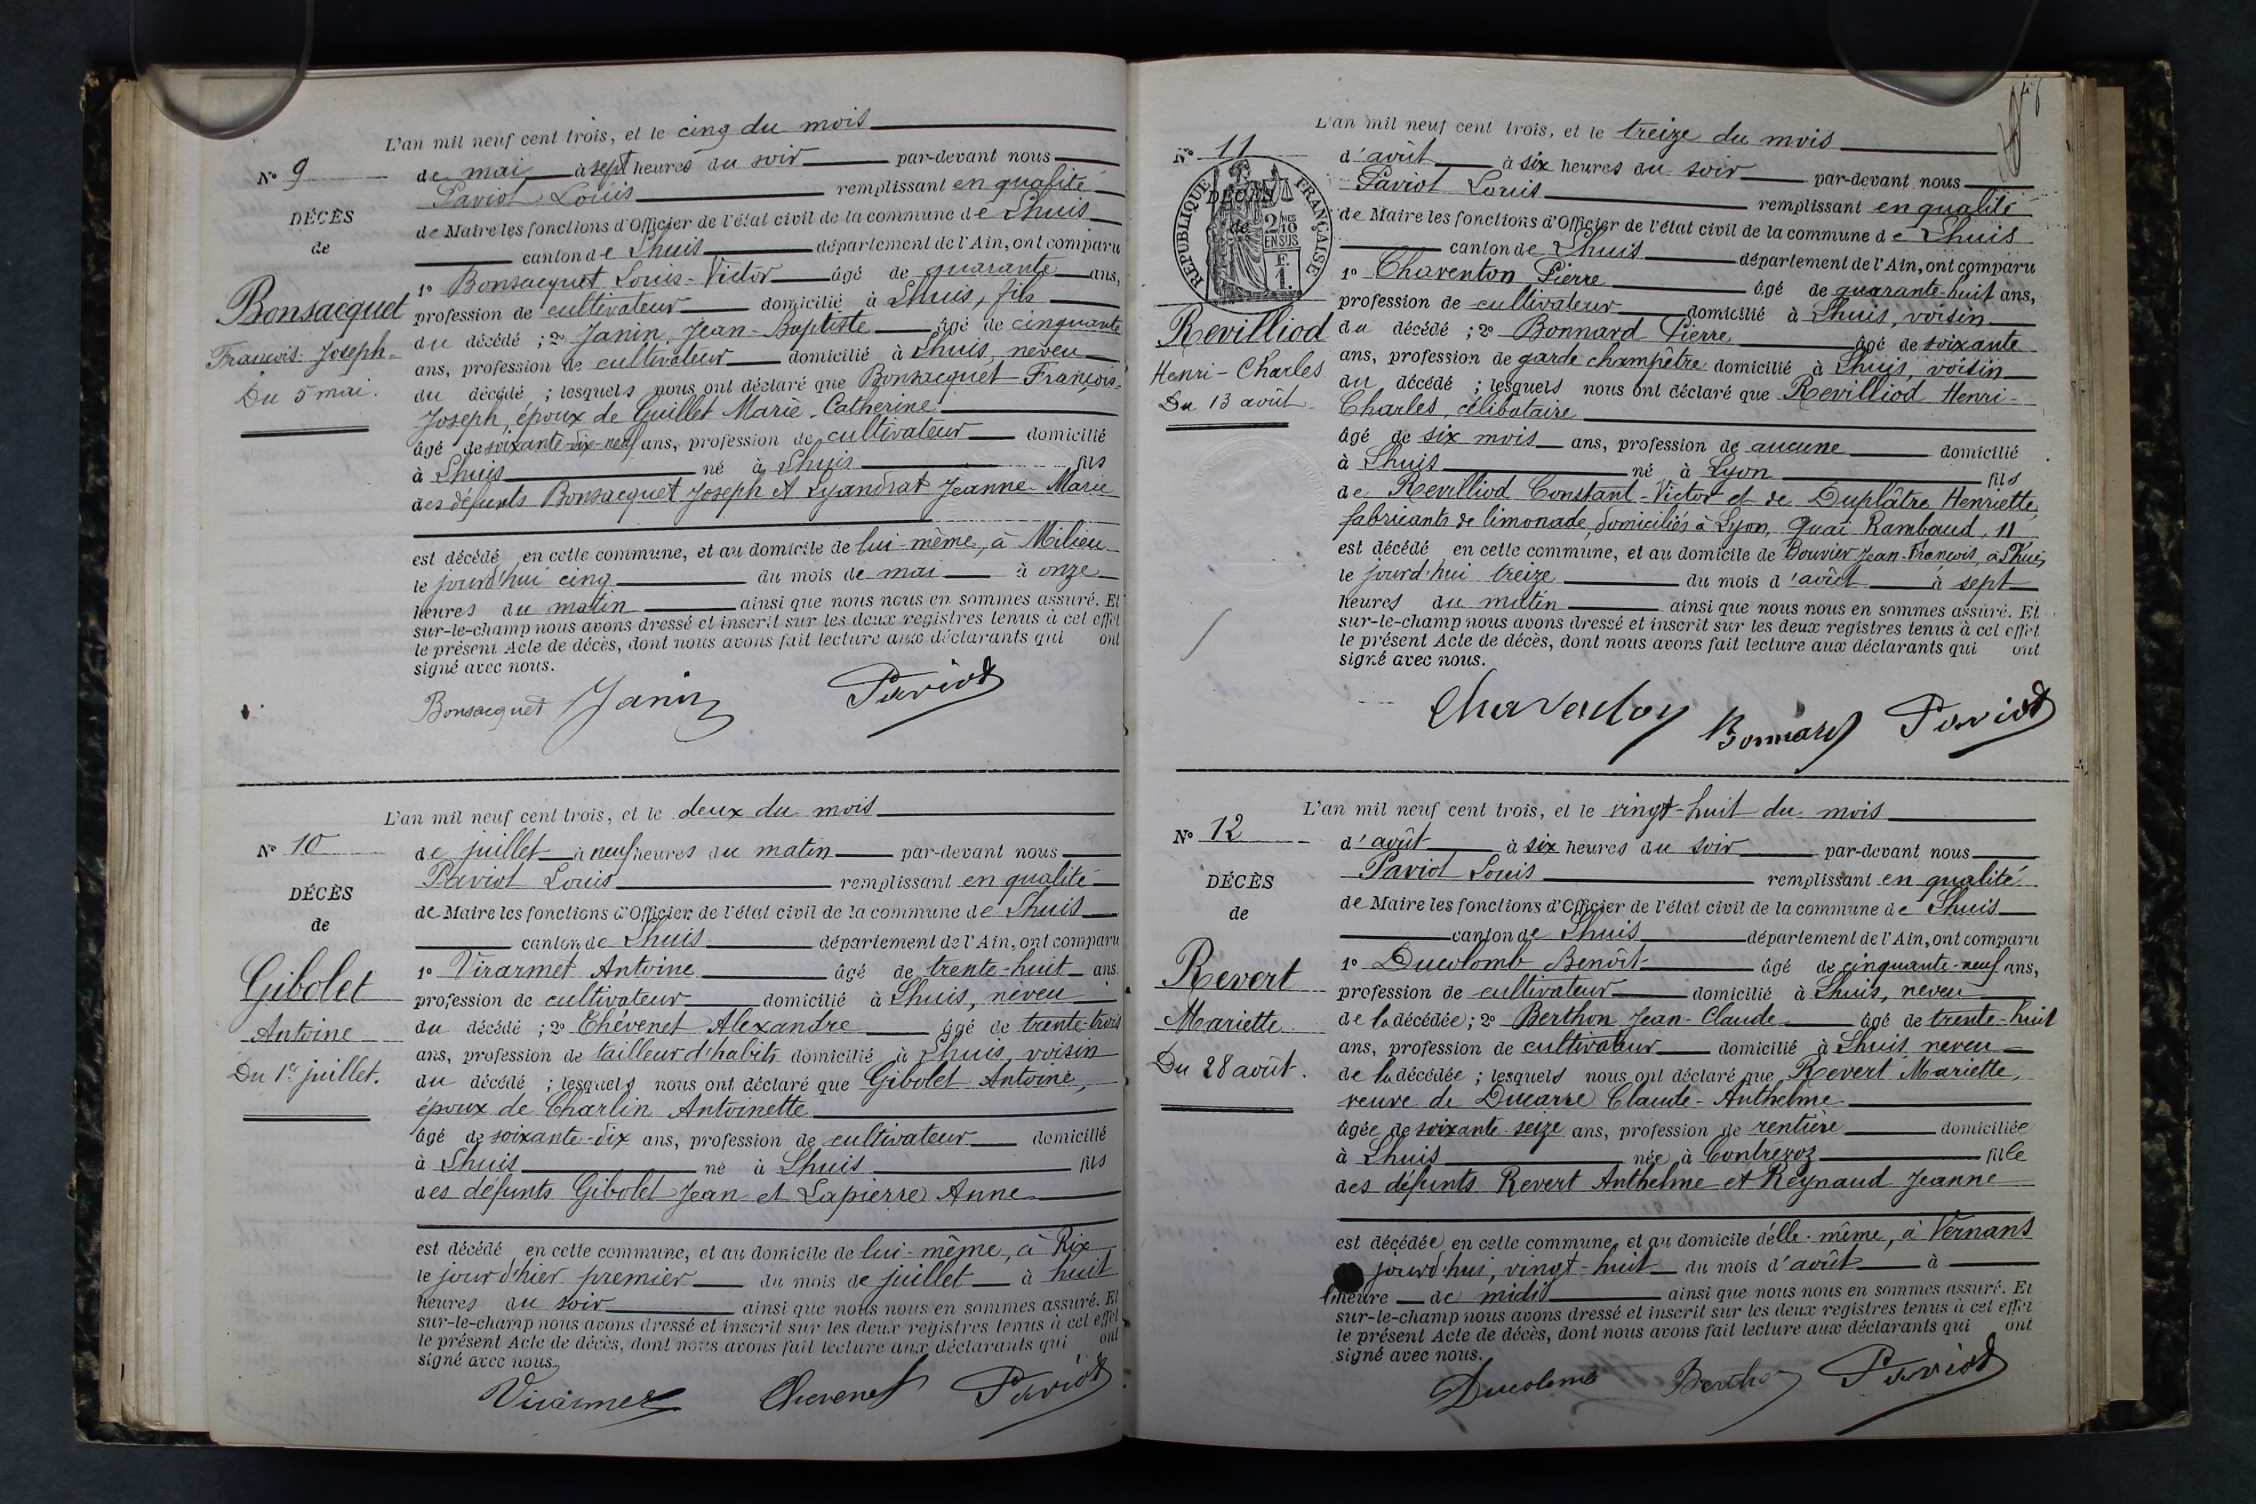 L'an mil neuf cent trois, et le cinq du mois
No 9
de mai à sept heures du soir par-devant nous
Paviot Louis remplissant en qualité
DÉCÈS
de Maire les fonctions d'Officier de l'état civil de la commune de Lhuis
de
canton de Lhuis département de l'Ain, ont comparu
1o Bonsacquet Louis-Victor âgé de quarante ans,
Bonsacquet
profession de cultivateur domicilié à Lhuis, fils
du décédé ; 2o Janin, Jean-Baptiste âgé de cinquante
François-Joseph
ans, profession de cultivateur domicilié à Lhuis, neveu
Du 5 mai.
du décédé ; lesquels nous ont déclaré que Bonsacquet François-
Joseph, époux de Guillet Marie-Catherine
âgé de soixante-dix-neuf ans, profession de cultivateur domicilié
à Lhuis né à Lhuis fils
des défunts Bonsacquet Joseph et Lyandrat Jeanne-Marie
est décédé en cette commune, et au domicile de lui-même, à Milieu
le jourd'hui cinq du mois de mai à onze
heures du matin ainsi que nous nous en sommes assuré. Et
sur-le-champ nous avons dressé et inscrit sur les deux registres tenus à cet effet
le présent Acte de décès, dont nous avons fait lecture aux déclarants qui ont
signé avec nous.
Bonsacquet Janin Paviot
L'an mil neuf cent trois, et le deux du mois
No 10
de juillet à neuf heures du matin par-devant nous
Paviot Louis remplissant en qualité
DÉCÈS
de Maire les fonctions d'Officier de l'état civil de la commune de Lhuis
de
canton de Lhuis département de l'Ain, ont comparu
1o Virarmet Antoine âgé de trente-huit ans
Gibolet
profession de cultivateur domicilié à Lhuis, neveu
Antoine
du décédé ; 2o Thévenet Alexandre âgé de trente-trois
ans, profession de tailleur d'habits domicilié à Lhuis, voisin
Du 1er juillet.
du décédé ; lesquels nous ont déclaré que Gibolet Antoine,
époux de Charlin Antoinette
âgé de soixante-dix ans, profession de cultivateur domicilié
à Lhuis né à Lhuis fils
des défunts Gibolet Jean et Lapierre Anne
est décédé en cette commune, et au domicile de lui-même, à Rix
le jour d'hier premier du mois de juillet à huit
heures du soir ainsi que nous nous en sommes assuré. Et
sur-le-champ nous avons dressé et inscrit sur les deux registres tenus à cet effet
le présent Acte de décès, dont nous avons fait lecture aux déclarants qui ont
signé avec nous.
Virarmet Thevenet Paviot
L'an mil neuf cent trois, et le treize du mois
No 11
d'août à six heures du soir par-devant nous
Paviot Louis remplissant en qualité
RÉPUBLIQUE FRANÇAISE
2/10 EN SUS
F. 1.
DÉCÈS
de
de Maire les fonctions d'Officier de l'état civil de la commune de Lhuis
canton de Lhuis département de l'Ain, ont comparu
1o Charenton Pierre âgé de quarante-huit ans,
profession de cultivateur domicilié à Lhuis, voisin
Revilliod
du décédé ; 2o Bonnard Pierre âgé de soixante
ans, profession de garde champêtre domicilié à Lhuis, voisin
Henri-Charles
du décédé ; lesquels nous ont déclaré que Revilliod Henri-
Du 13 août
Charles, célibataire
âgé de six mois ans, profession de aucune domicilié
à Lhuis né à Lyon fils
de Revilliod Constant-Victor et de Duplâtre Henriette
fabricants de limonade, domiciliés à Lyon, Quai Rambaud, 11
est décédé en cette commune, et au domicile de Bouvier Jean-François, à Lhuis
le jourd'hui treize du mois d'août à sept
heures du matin ainsi que nous nous en sommes assuré. Et
sur-le-champ nous avons dressé et inscrit sur les deux registres tenus à cet effet
le présent Acte de décès, dont nous avons fait lecture aux déclarants qui ont
signé avec nous.
Charenton Bonnard Paviot
L'an mil neuf cent trois, et le vingt-huit du mois
No 12
d'août à six heures du soir par-devant nous
Paviot Louis remplissant en qualité
DÉCÈS
de Maire les fonctions d'Officier de l'état civil de la commune de Lhuis
de
canton de Lhuis département de l'Ain, ont comparu
1o Ducolomb Benoît âgé de cinquante-neuf ans,
Revert
profession de cultivateur domicilié à Lhuis, neveu
Mariette
de la décédée ; 2o Berthon Jean-Claude âgé de trente-huit
ans, profession de cultivateur domicilié à Lhuis, neveu
Du 28 août.
de la décédée ; lesquels nous ont déclaré que Revert Mariette,
veuve de Ducarre Claude-Anthelme
âgée de soixante-seize ans, profession de rentière domiciliée
à Lhuis née à Contrevoz fille
des défunts Revert Anthelme et Reynaud Jeanne
est décédée en cette commune, et au domicile d'elle-même, à Vernans
jourd'hui, vingt-huit du mois d'août à
l'heure de midi ainsi que nous nous en sommes assuré. Et
sur-le-champ nous avons dressé et inscrit sur les deux registres tenus à cet effet
le présent Acte de décès, dont nous avons fait lecture aux déclarants qui ont
signé avec nous.
Ducolomb Berthon Paviot